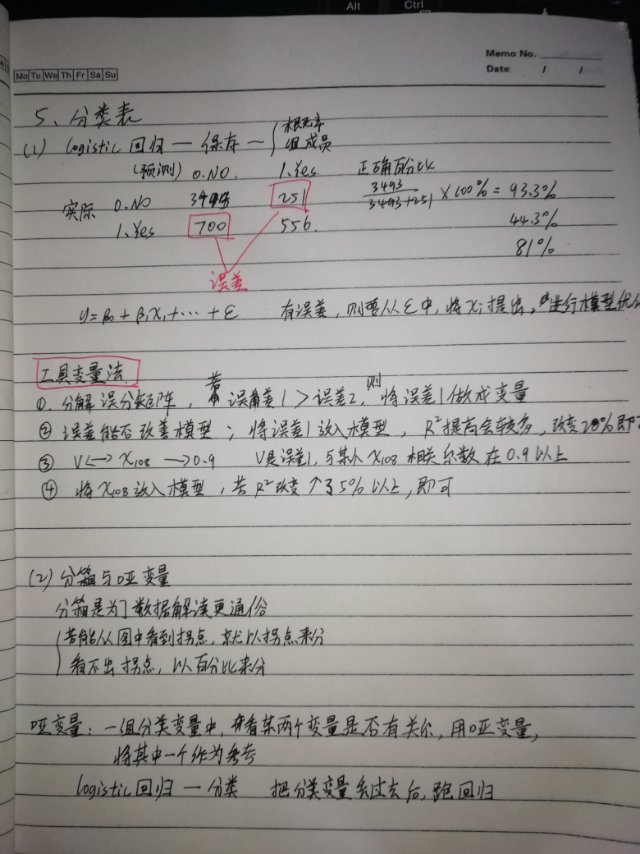 Alt Ctrl
Memo No.
Mo Tu We Th Fr Sa Su
Date / /
5、分类表
(1) logistic回归 — 保存 — { 概率
组成员
(预测) 0.NO. 1.Yes. 正确百分比
实际 0.NO 3493 251 3493/3493+251 ×100% = 93.3%
1.Yes 700 556. 44.3%
81%
误差
y=β0+β1x1+…+ε 有误差，则要从ε中，将xi提出，进行模型优化
工具变量法
①. 分解误分矩阵，若误差1>误差2，则将误差1做成变量
② 误差能否改善模型；将误差1放入模型，R²提高会较多，改变20%即可
③ V↔X108→0.9 V是误差1，与某人X108相关系数在0.9以上
④ 将X108放入模型，若R²改变↑了5%以上，即可
(2) 分箱与哑变量
分箱是为了数据解读更通俗
{ 若能从图中看到拐点，就以拐点来分
看不出拐点，以百分比来分
哑变量：一组分类变量中，看某两个变量是否有关系，用哑变量，
将其中一个作为参考
logistic回归 — 分类 把分类变量丢过去后，跑回归